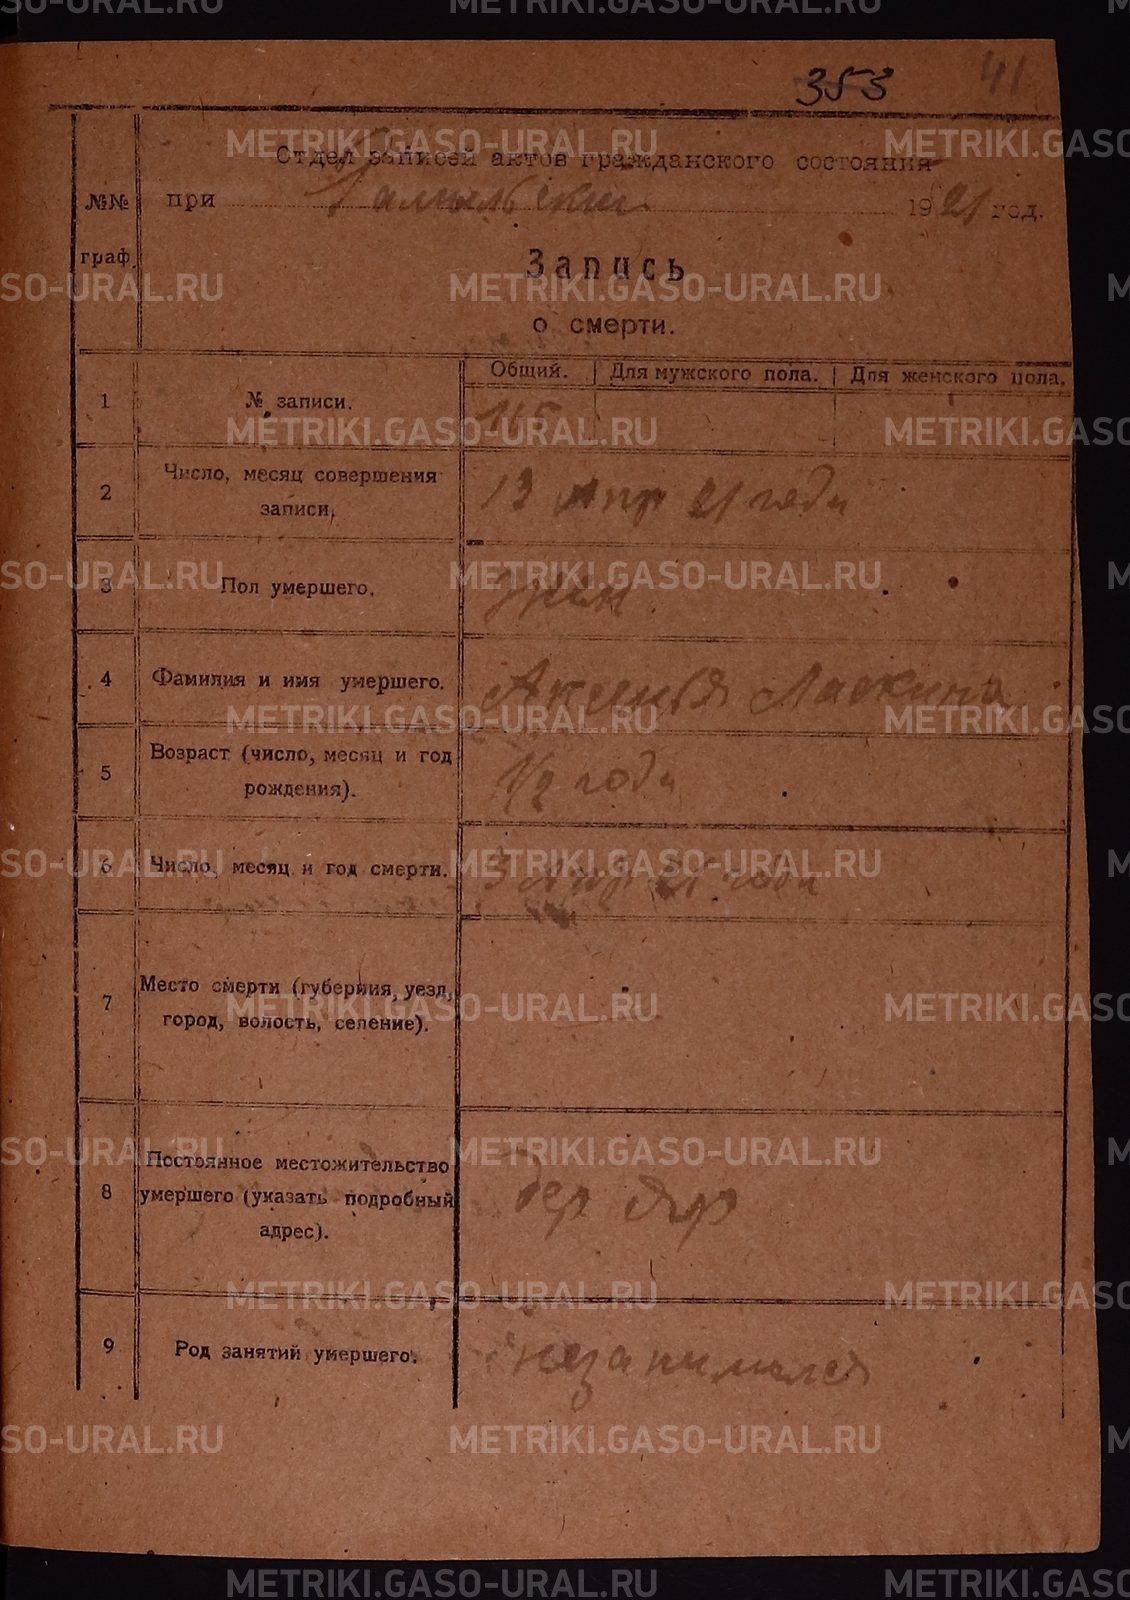 353 41
Отдел записей актов гражданского состояния
№№ при 1921 год.
граф.
Запись
о смерти.
Общий. Для мужского пола. Для женского пола.
1 № записи. 115
2 Число, месяц совершения
записи. 13 Апр 21 года
3 Пол умершего. жен.
4 Фамилия и имя умершего. Акулина Ласкина
5 Возраст (число, месяц и год
рождения). 1/2 года
6 Число, месяц и год смерти. 3 Апр 21 года
7 Место смерти (губерния, уезд,
город, волость, селение).
8 Постоянное местожительство
умершего (указать подробный
адрес). дер Яр
9 Род занятий умершего. незанимался
METRIKI.GASO-URAL.RU